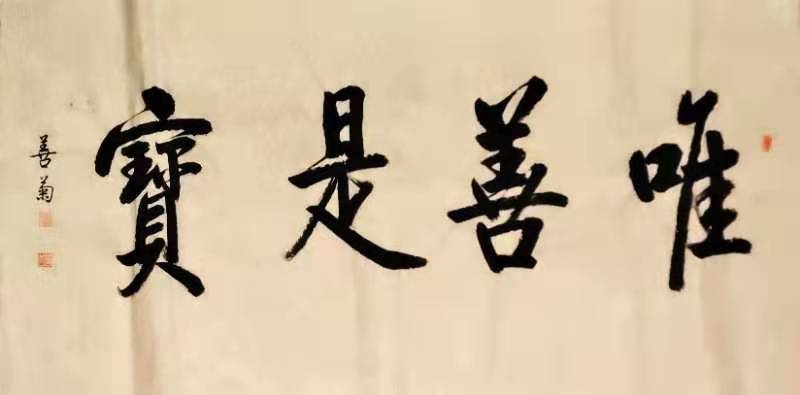 唯善是寶
善菊